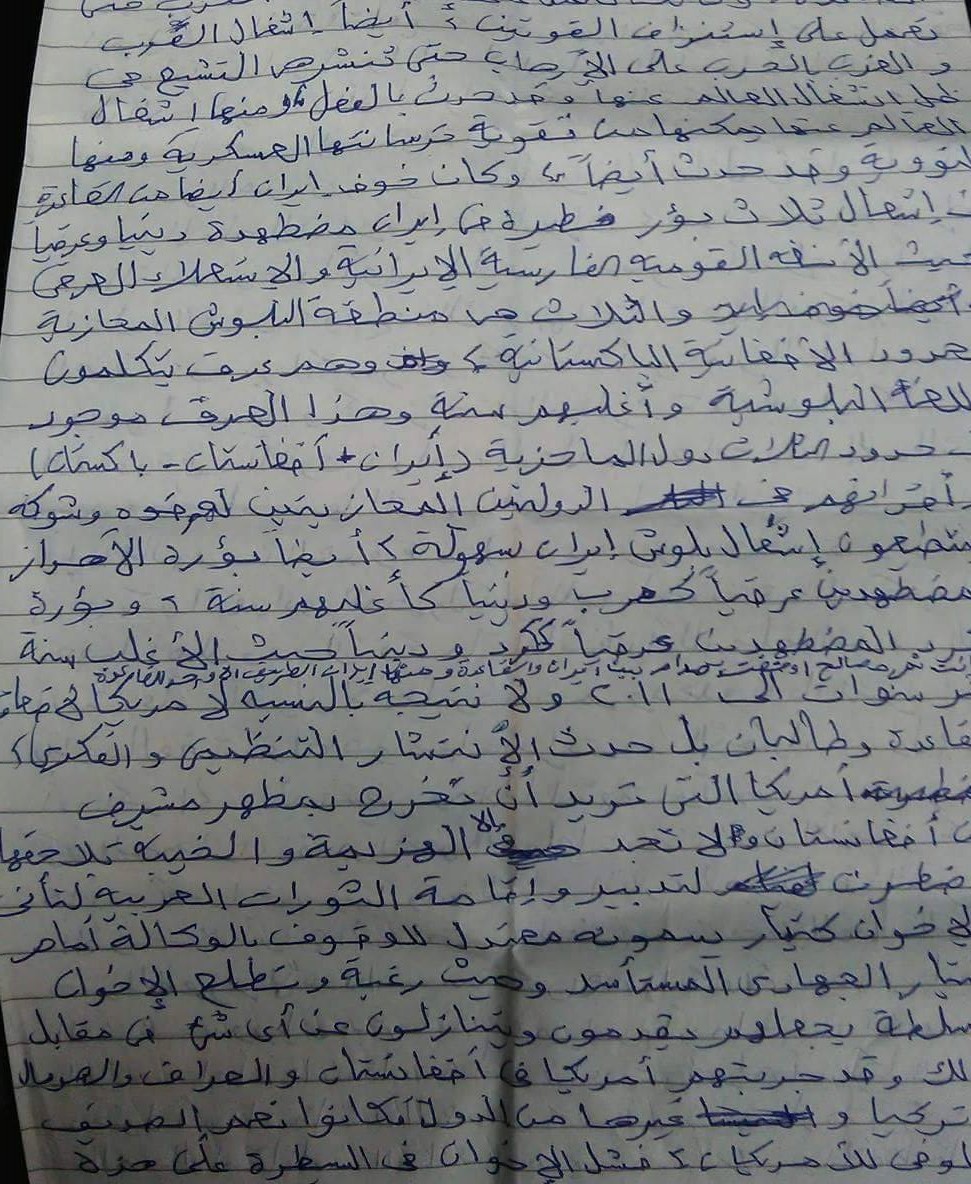 تعمل على إستنزاف القوتين ، أيضاً إشغال الغرب
و العرب بالحرب على الإرهاب حتى تنشر التشيع في
ظل انشغال العالم عنها وقد حدث بالفعل ومنها اشغال
العالم عنها يمكنها من تقوية ترسانتها العسكرية ومنها
النووية وقد حدث أيضاً ، وكان خوف إيران أيضاً من القاعدة
إشعال ثلاث بؤر خطيرة في إيران مضطهدة دينيا وعرقيا
حيث الأنفة القومية الفارسية الإيرانية والاستعلاء العرقي
والثلاث هي منطقة البلوش المحازية
لحدود الأفغانية الباكستانية ، وهم عرق يتكلمون
اللغة البلوشية وأغلبهم سنة وهذا العرق موجود
حدود الثلاث دول الماحزية (إيران + أفغانستان - باكستان)
الدولتين المحازيتين لهم قوه وشوكة
إشعال بلوش إيران بسهولة ، أيضاً بؤرة الأحواز
مضطهدين عرقياً كعرب ودينياً كأغلبهم سنة ، وبؤرة
المضطهدين عرقياً ككرد ودينياً حيث الأغلب سنة
مصالح بين ايران والقاعدة
سنوات الى ٢٠١١ ولا نتيجة بالنسبة لأمريكا
قاعدة وطالبان بل حدث الأنتشار التنظيمي والفكري ،
أمريكا التي تريد أن تخرج بمظهر مشرف
أفغانستان ولا تجد إلا الهزيمة والخيبة تلاحقها
لتدبير وإقامة الثورات العربية لتأتي
الإخوان كتيار يسمونه معتدل للوقوف بالوكالة أمام
تيار الجهادي المستأسد وحيث رغبة وتطلع الإخوان
سلطة يجعلهم يقدمون ويتنازلون عن أي شئ في مقابل
ذلك وقد جربتهم أمريكا في أفغانستان والعراق والصومال
تركيا و غيرها من الدول فكانوا نعم الصديق
الوفي للأمريكان ، فشل الإخوان في السيطرة على